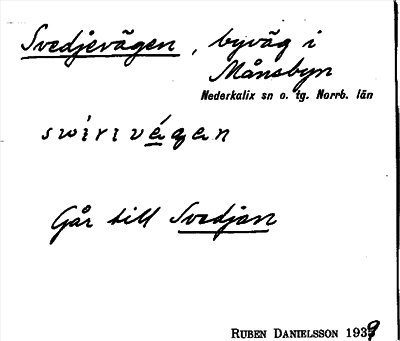 Svedjevägen, byväg i
Månsbyn
Nederkalix sn o. tg. Norrb. län
swirivé̲gan
Går till Svedjan
RUBEN DANIELSSON 1939